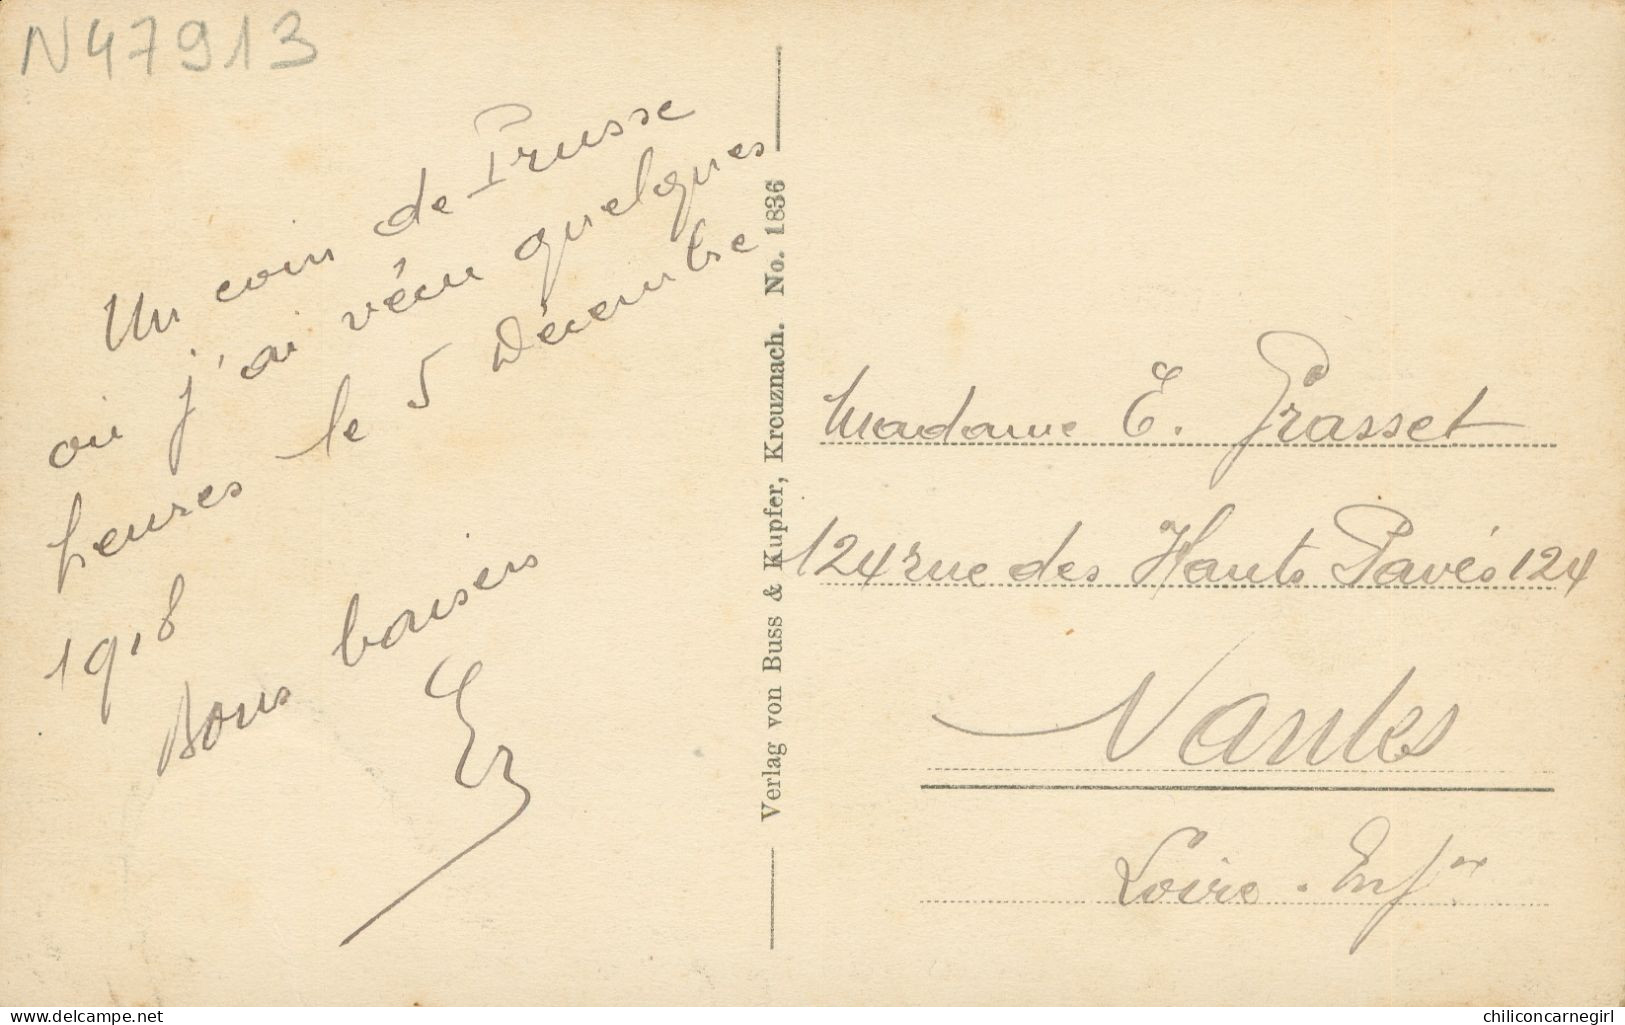 N47913
Un coin de Prusse
où j'ai vécu quelques
heures le 5 Décembre
1918
Bons baisers
Verlag von Buss & Kupfer, Kreuznach. No. 1836
Madame E. Grasset
124 rue des Hauts Pavés 124
Nantes
Loire-Infre
delcampe.net
chiliconcarnegirl